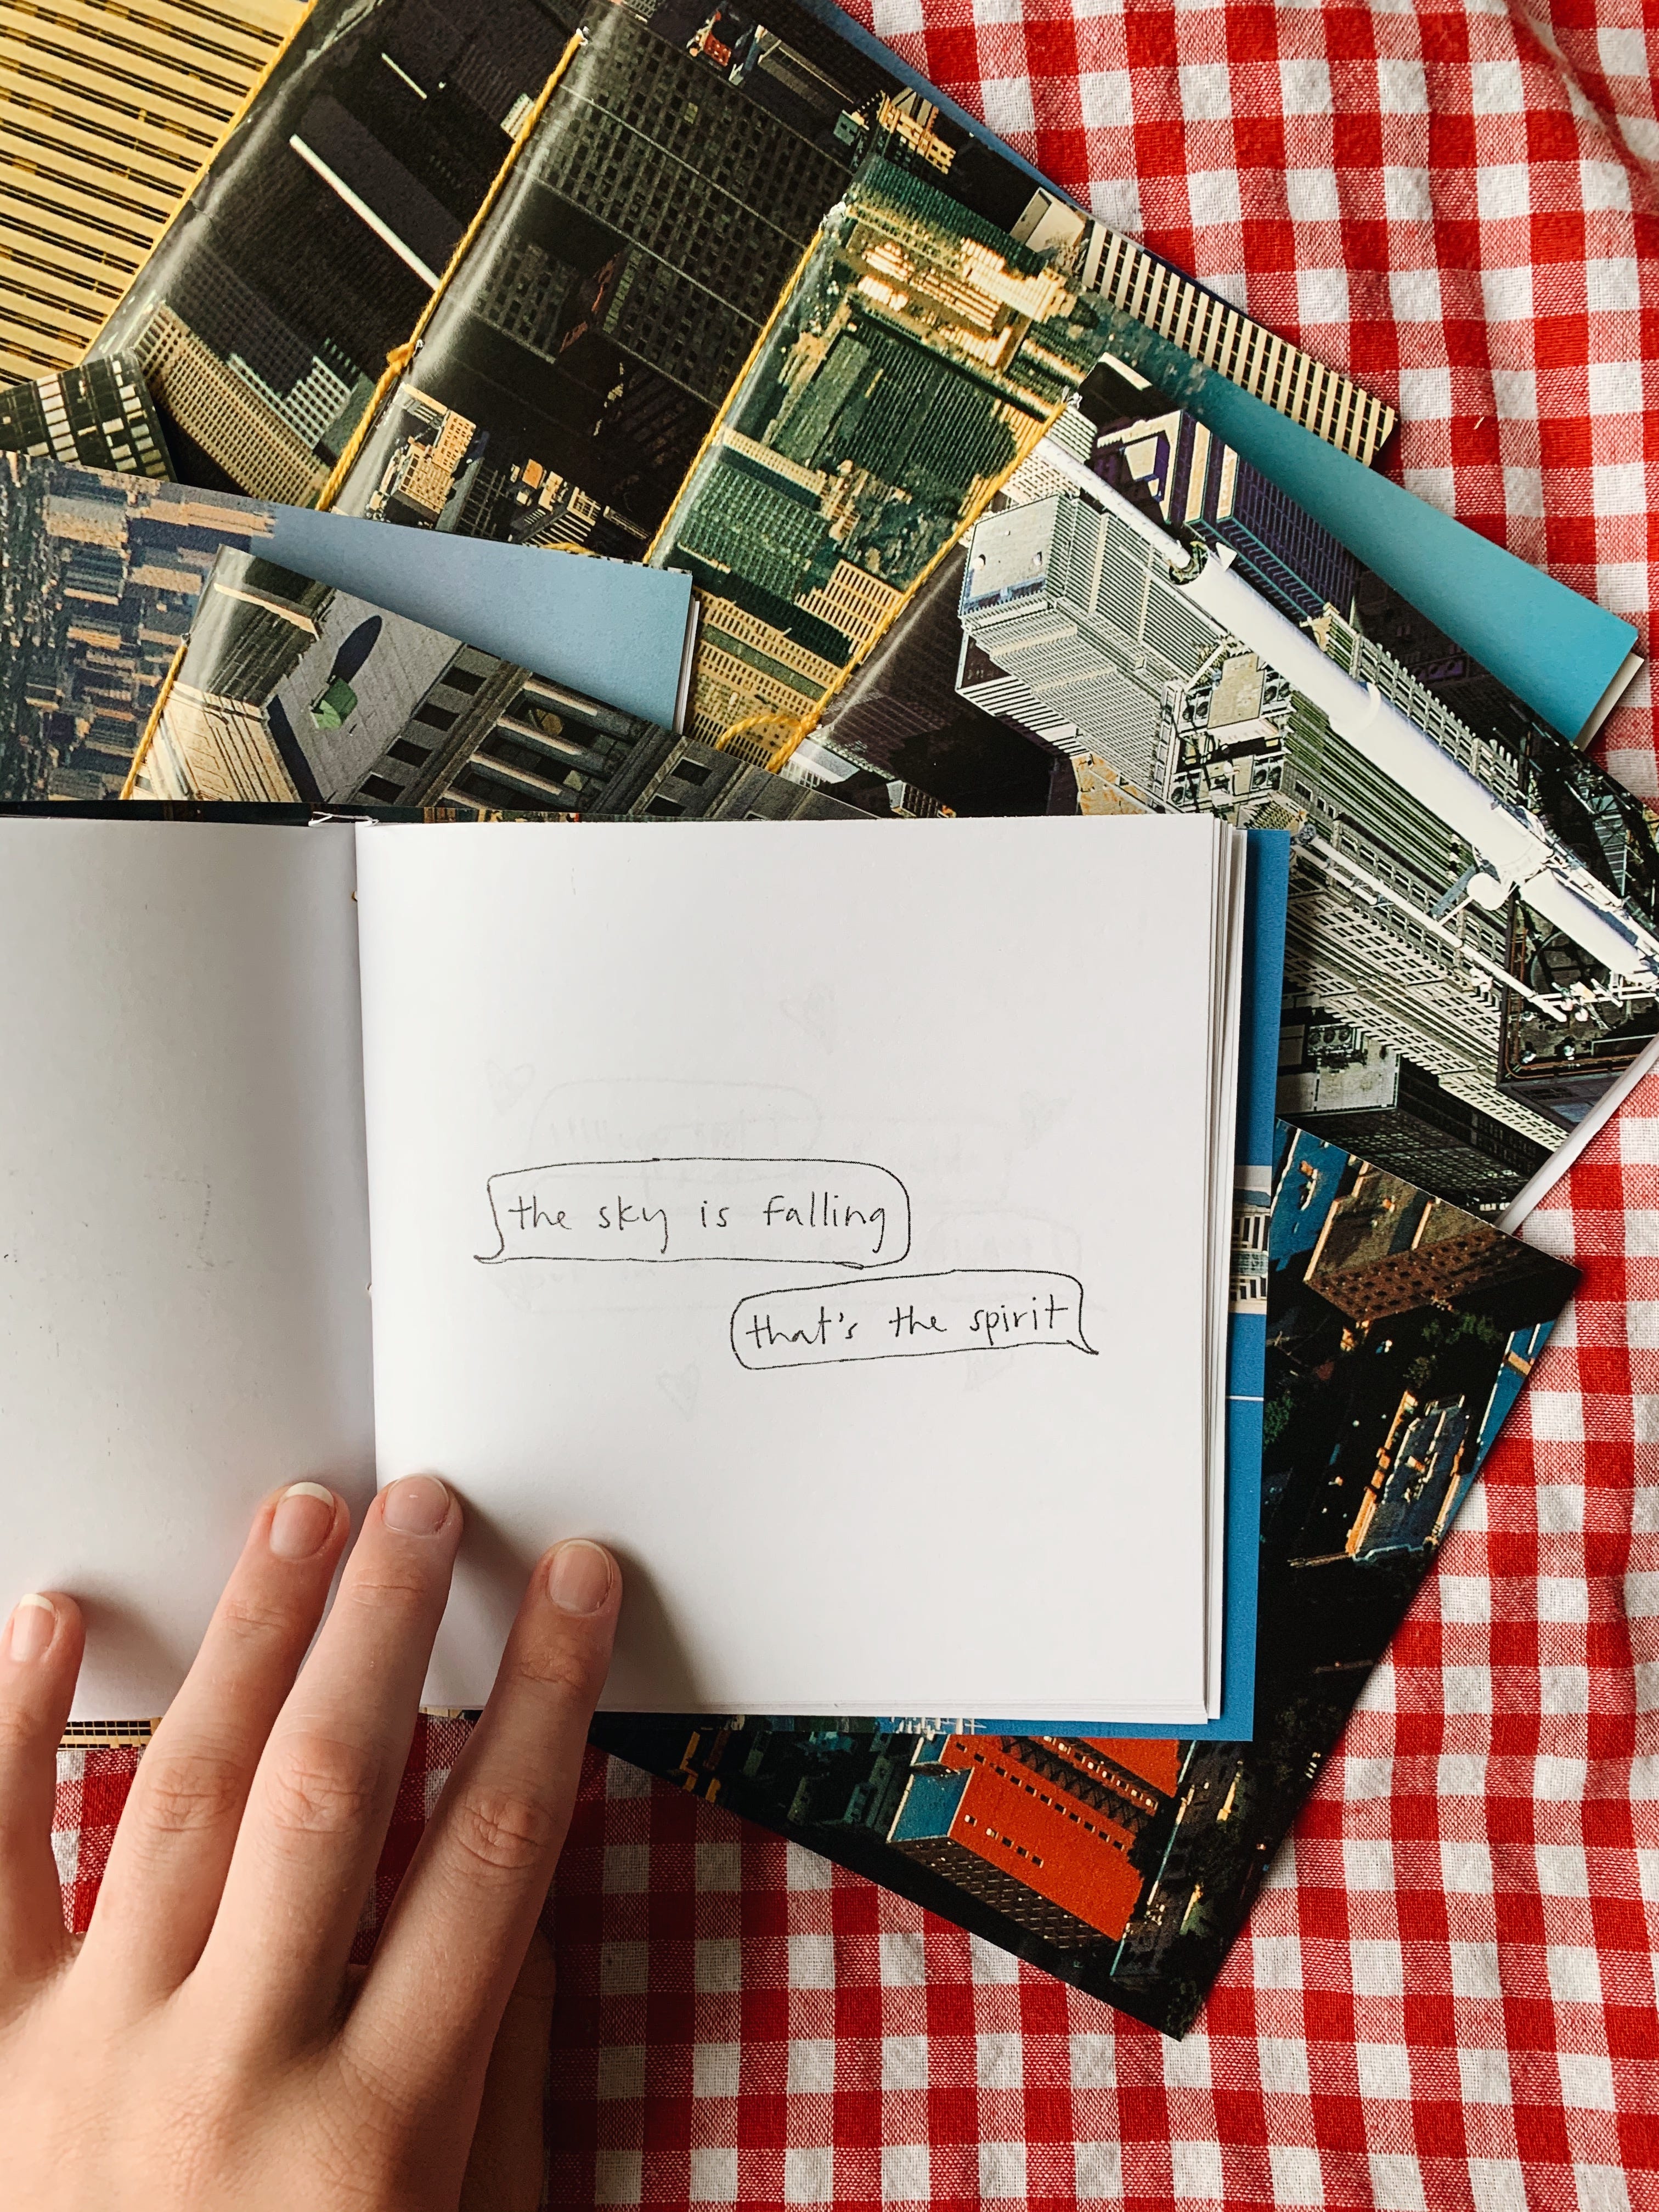 the sky is falling
that's the spirit